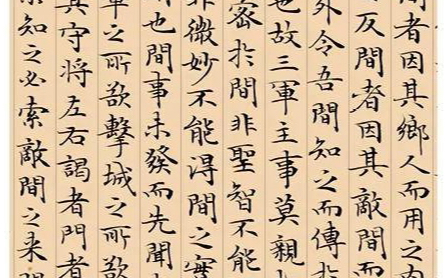 間者因其鄉人而用之内
反間者因其敵間而
外令吾間知之而傳於
也故三軍主事莫親
密於間非聖智不能
非微妙不能淂間之實
也間事未發而先聞
軍之所欲擊城之所欲
其守将左右謁者門者
知之必索敵間之来